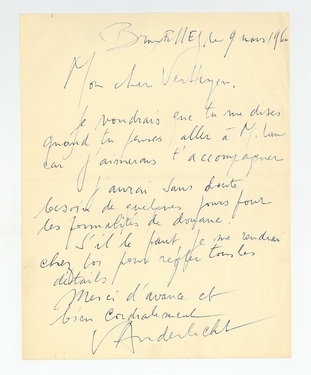 Bruxelles, le 9 mars 1960
Mon cher Verheyen,
Je voudrais que tu me dises
quand tu penses aller à Milan
car j'aimerais t'accompagner
J'aurai sans doute
besoin de quelques jours pour
les formalités de douane.
S'il le faut, je me rendrai
chez toi pour régler tous les
détails
Merci d'avance et
bien cordialement
Vanderlicht